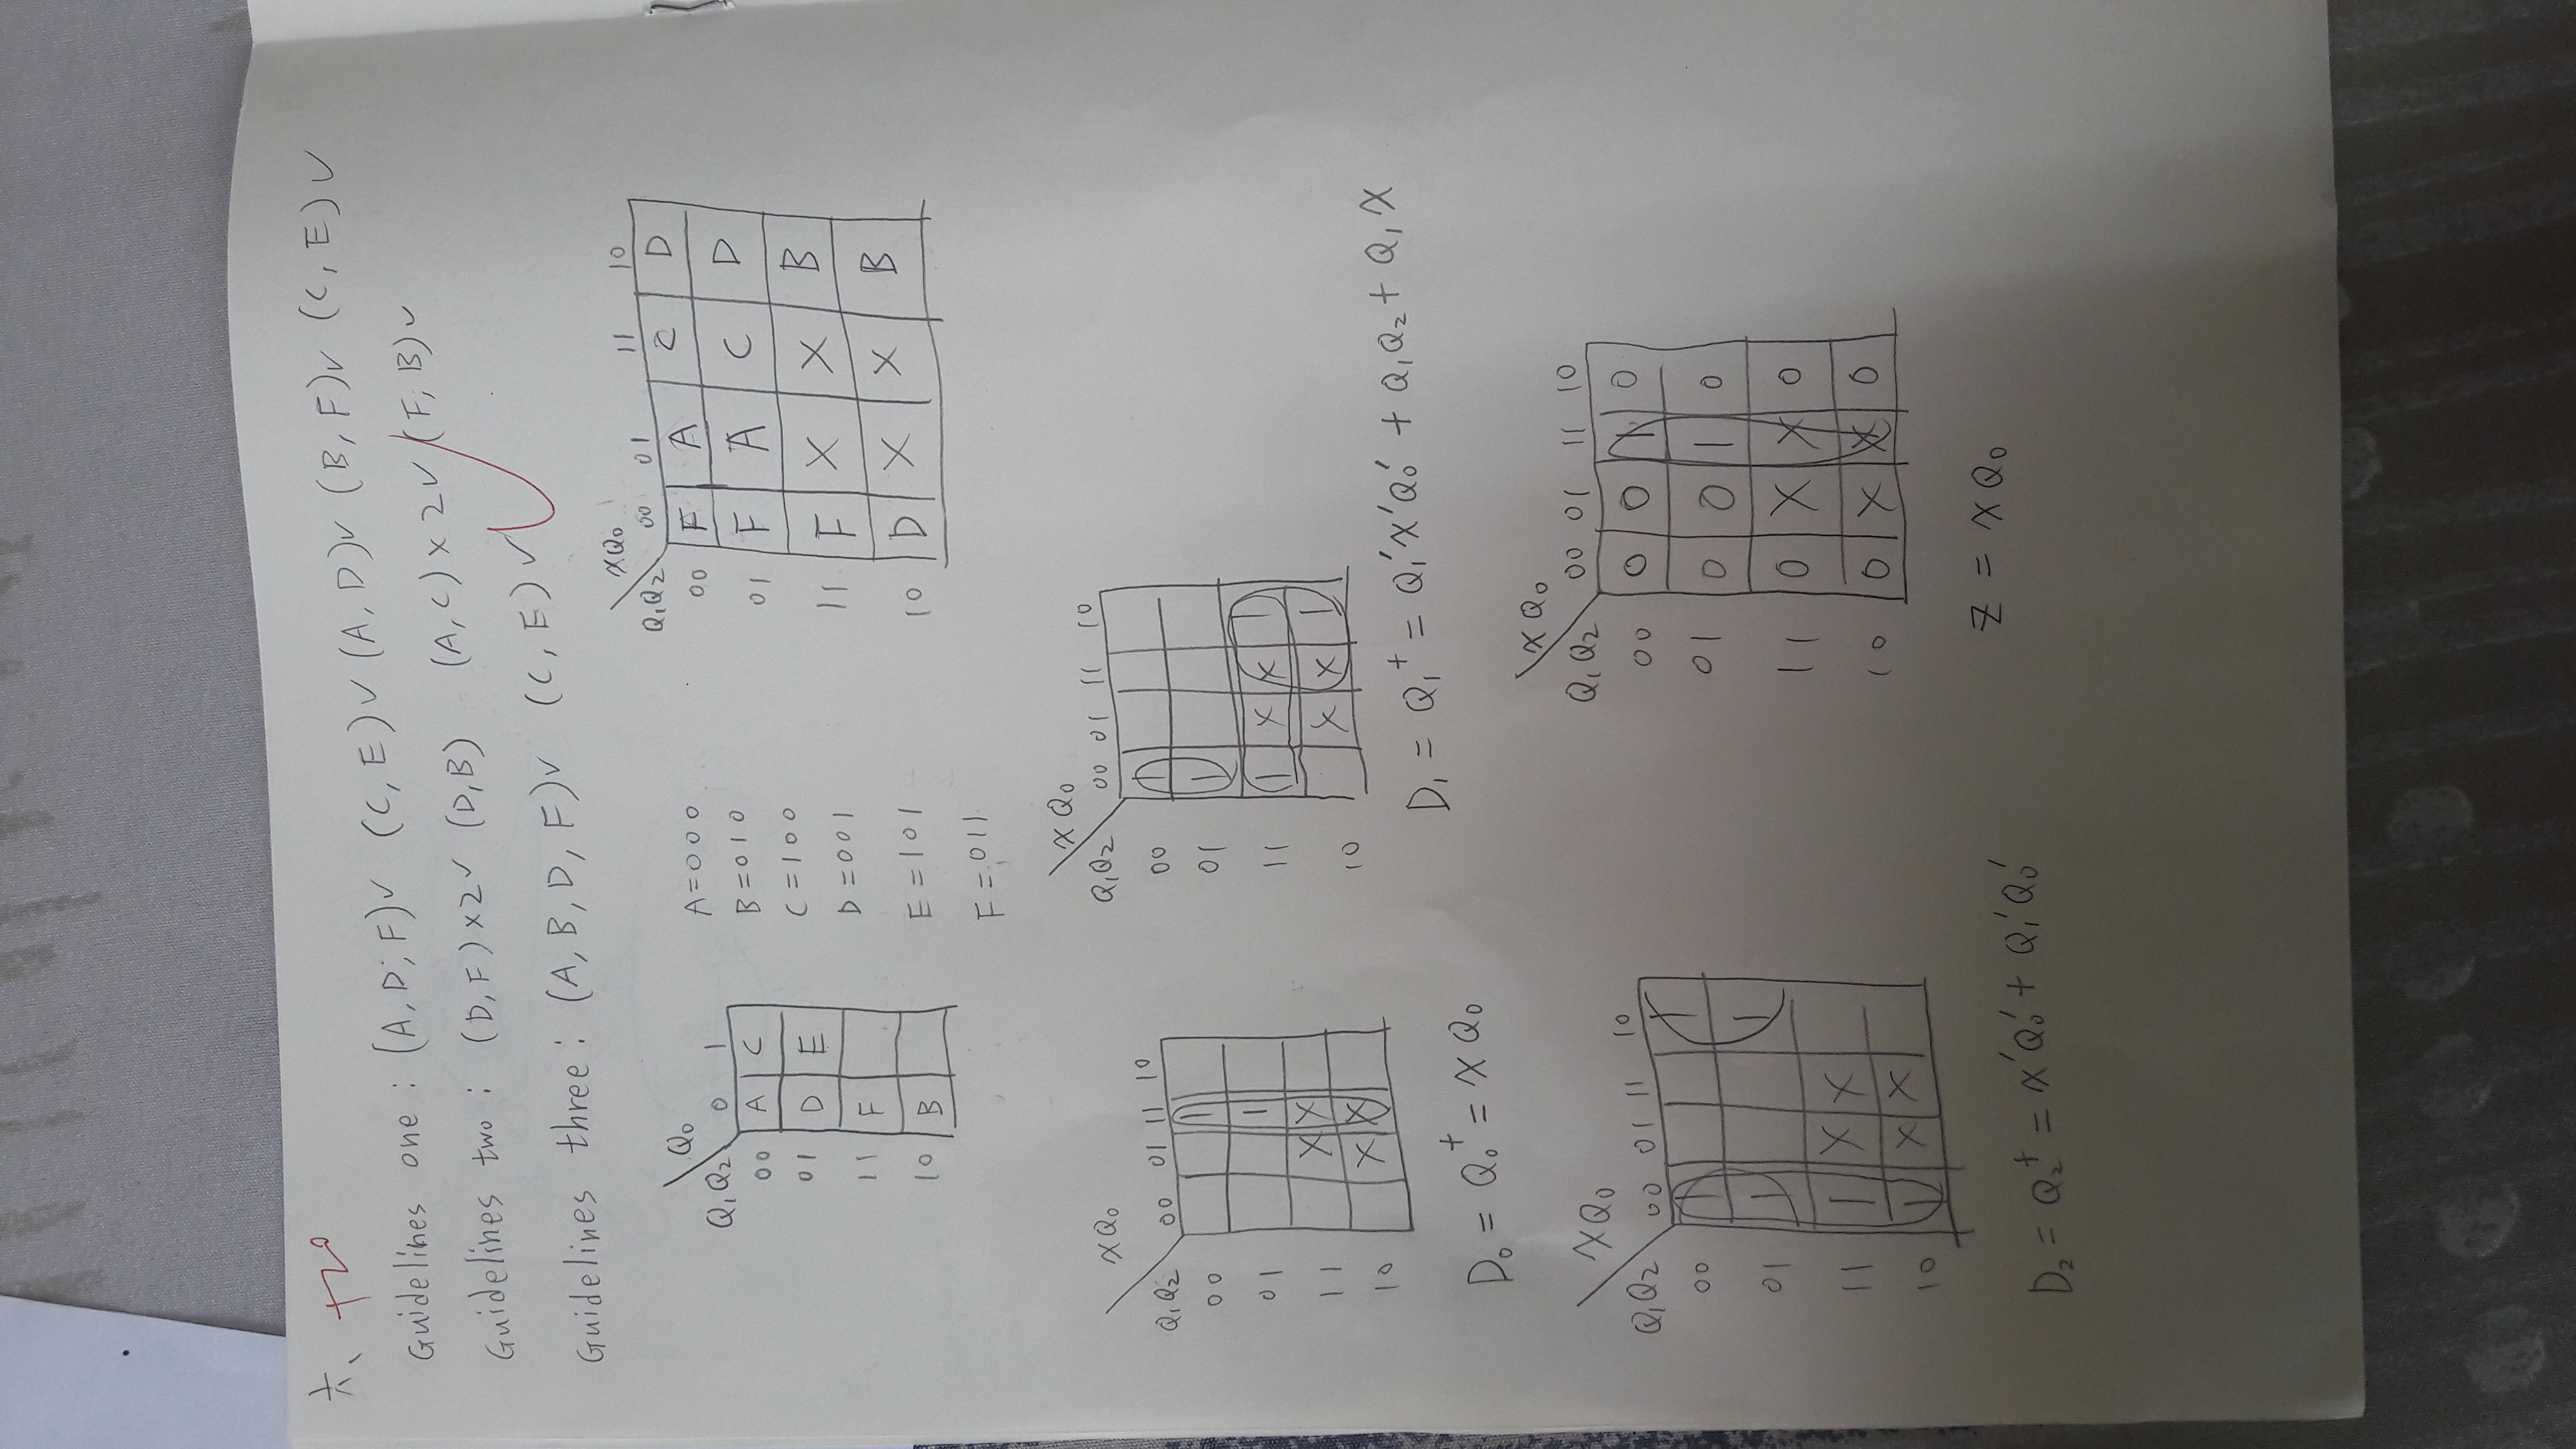 六、 +20
Guidelines one : (A, D, F)✓ (C, E)✓ (A, D)✓ (B, F)✓ (C, E)✓
Guidelines two : (D, F)×2✓ (D,B) (A,C)×2✓ (F, B)✓
Guidelines three : (A, B, D, F)✓ (C, E)✓
Q₀
Q₁Q₂ 0 1
00 A C
01 D E
11 F
10 B
A=000
B=010
C=100
D=001
E=101
F=011
XQ₀
Q₁Q₂ 00 01 11 10
00 F A C D
01 F A C D
11 F X X B
10 D X X B
XQ₀
Q₁Q₂ 00 01 11 10
00 1
01 1
11 X X
10 X X
D₀ = Q₀⁺ = XQ₀
XQ₀
Q₁Q₂ 00 01 11 10
00 1
01 1
11 1 X X 1
10 X X 1
D₁ = Q₁⁺ = Q₁'X'Q₀' + Q₁Q₂ + Q₁X
XQ₀
Q₁Q₂ 00 01 11 10
00 1 1
01 1 1
11 1 X X
10 1 X X
D₂ = Q₂⁺ = X'Q₀' + Q₁'Q₀'
XQ₀
Q₁Q₂ 00 01 11 10
00 0 0 1 0
01 0 0 1 0
11 0 X X 0
10 0 X X 0
Z = XQ₀